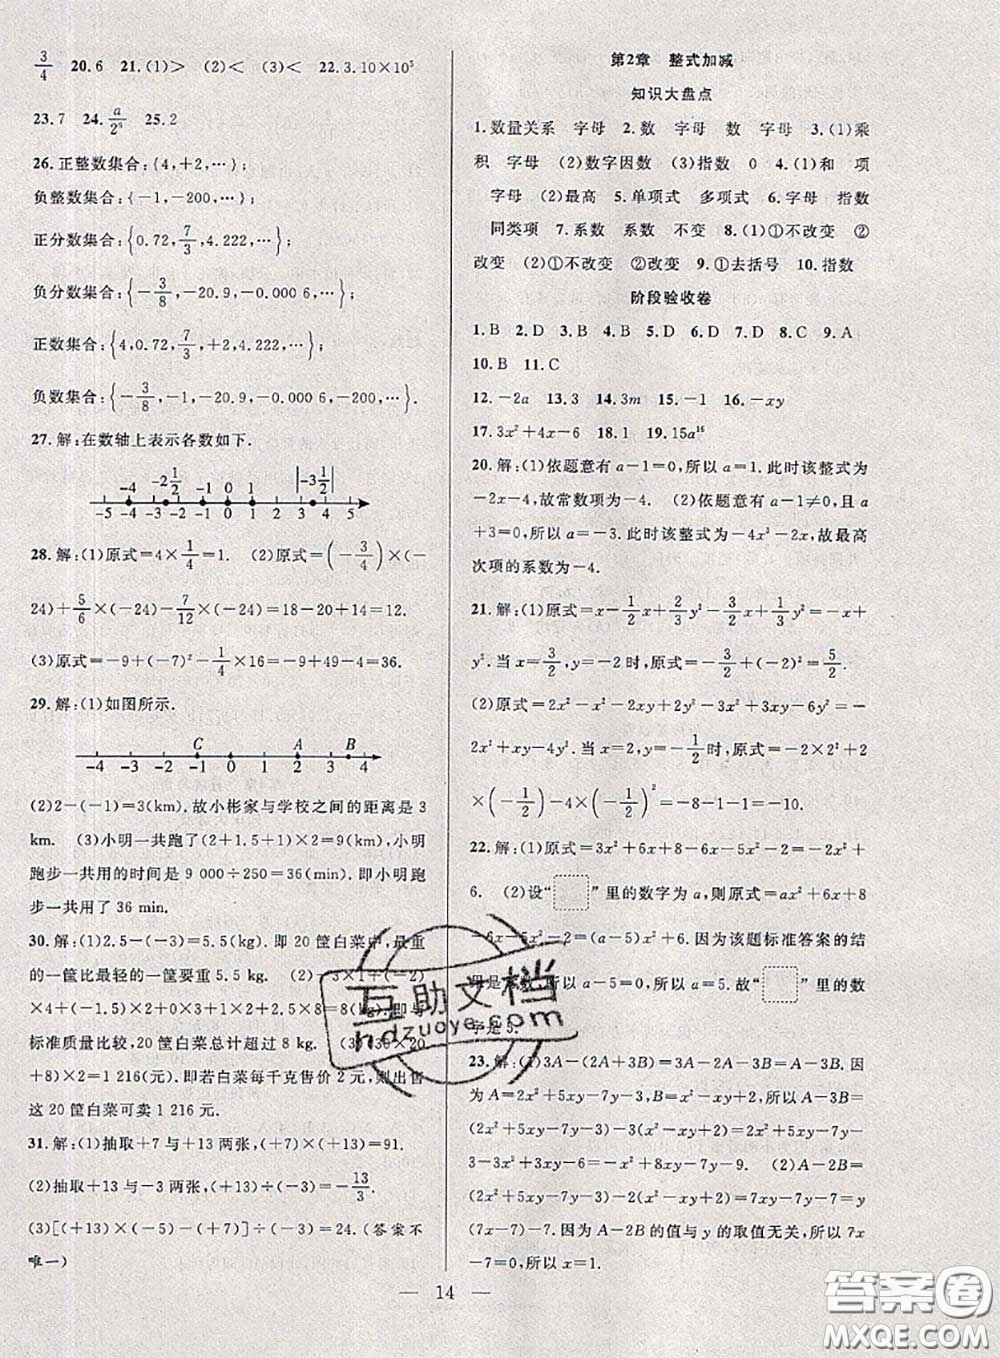 3/4 20.6 21.(1)> (2)< (3)< 22.3.10×10⁵
23.7 24.a/2⁵ 25.2
26.正整数集合:{4,+2,…};
负整数集合:{-1,-200,…};
正分数集合:{0.72,7/3,4.222,…};
负分数集合:{-3/8,-20.9,-0.000 6,…};
正数集合:{4,0.72,7/3,+2,4.222,…};
负数集合:{-3/8,-1,-20.9,-0.000 6,-200,…}.
27.解:在数轴上表示各数如下.
-4 -2 1/2 -1 0 1 |-3 1/2|
-5 -4 -3 -2 -1 0 1 2 3 4 5
28.解:(1)原式=4×1/4=1. (2)原式=(-3/4)×(-
24)+5/6×(-24)-7/12×(-24)=18-20+14=12.
(3)原式=-9+(-7)²-1/4×16=-9+49-4=36.
29.解:(1)如图所示.
C A B
-4 -3 -2 -1 0 1 2 3 4
(2)2-(-1)=3(km).故小彬家与学校之间的距离是 3
km. (3)小明一共跑了(2+1.5+1)×2=9(km),小明
跑步一共用的时间是 9 000÷250=36(min).即小明
跑步一共用了 36 min.
30.解:(1)2.5-(-3)=5.5(kg).即 20 筐白菜中,最重
的一筐比最轻的一筐要重 5.5 kg. (2)-3×1+(-2)
×4+(-1.5)×2+0×3+1×2+2.5×8=8(kg).即与
标准质量比较,20 筐白菜总计超过 8 kg. (3)(30×20
+8)×2=1 216(元).即若白菜每千克售价 2 元,则出售
这 20 筐白菜可卖 1 216 元.
31.解:(1)抽取+7 与+13 两张,(+7)×(+13)=91.
(2)抽取+13 与-3 两张,(+13)÷(-3)=-13/3.
(3)[(+13)×(-5)-(+7)]÷(-3)=24.(答案不
唯一)
第2章 整式加减
知识大盘点
1.数量关系 字母 2.数 字母 数 字母 3.(1)乘
积 字母 (2)数字因数 (3)指数 0 4.(1)和 项
字母 (2)最高 5.单项式 多项式 6.字母 指数
同类项 7.系数 系数 不变 8.(1)①不改变 ②
改变 (2)①不改变 ②改变 9.①去括号 10.指数
阶段验收卷
1.B 2.D 3.B 4.B 5.D 6.D 7.D 8.C 9.A
10.B 11.C
12.-2a 13.3 14.3m 15.-1 16.-xy
17.3x²+4x-6 18.1 19.15a¹⁶
20.解:(1)依题意有 a-1=0,所以 a=1.此时该整式为
-2x-4,故常数项为-4. (2)依题意有 a-1≠0,且 a
+3=0,所以 a=-3.此时该整式为-4x³-2x,故最高
次项的系数为-4.
21.解:(1)原式=x-1/2x+2/3y²-3/2x+1/3y²=-x+
y².当 x=3/2,y=-2时,原式=-3/2+(-2)²=5/2.
(2)原式=2x²-x²-2xy+2y²-3x²+3xy-6y²=-
2x²+xy-4y².当 x=-1,y=-1/2时,原式=-2×2²+2
×(-1/2)-4×(-1/2)²=-8-1-1=-10.
22.解:(1)原式=3x²+6x+8-6x-5x²-2=-2x²+
6. (2)设“ ”里的数字为 a,则原式=ax²+6x+8
-6x-5x²-2=(a-5)x²+6.因为该题标准答案的结
果是常数,所以 a-5=0,所以 a=5.故“ ”里的数
字是5.
23.解:(1)3A-(2A+3B)=3A-2A-3B=A-3B.
因为 A=2x²+xy+5y-7y-3,B=x²-xy+y-1,所以 A-3B
=(2x²+5xy-7y-3)-3(x²-xy+2)=2x²+5xy-7y-
3-3x²+3xy-6=-x²+8xy-7y-9. (2)A-2B=
(2x²+5xy-7y-3)-2(x²-xy+2)=7xy-7y-7=(7x
-7)y-7.因为 A-2B 的值与 y 的取值无关,所以 7x
-7=0,所以 x=1.
— 14 —
互助文档
hdzuoye.com
答案圈
MXQE.COM